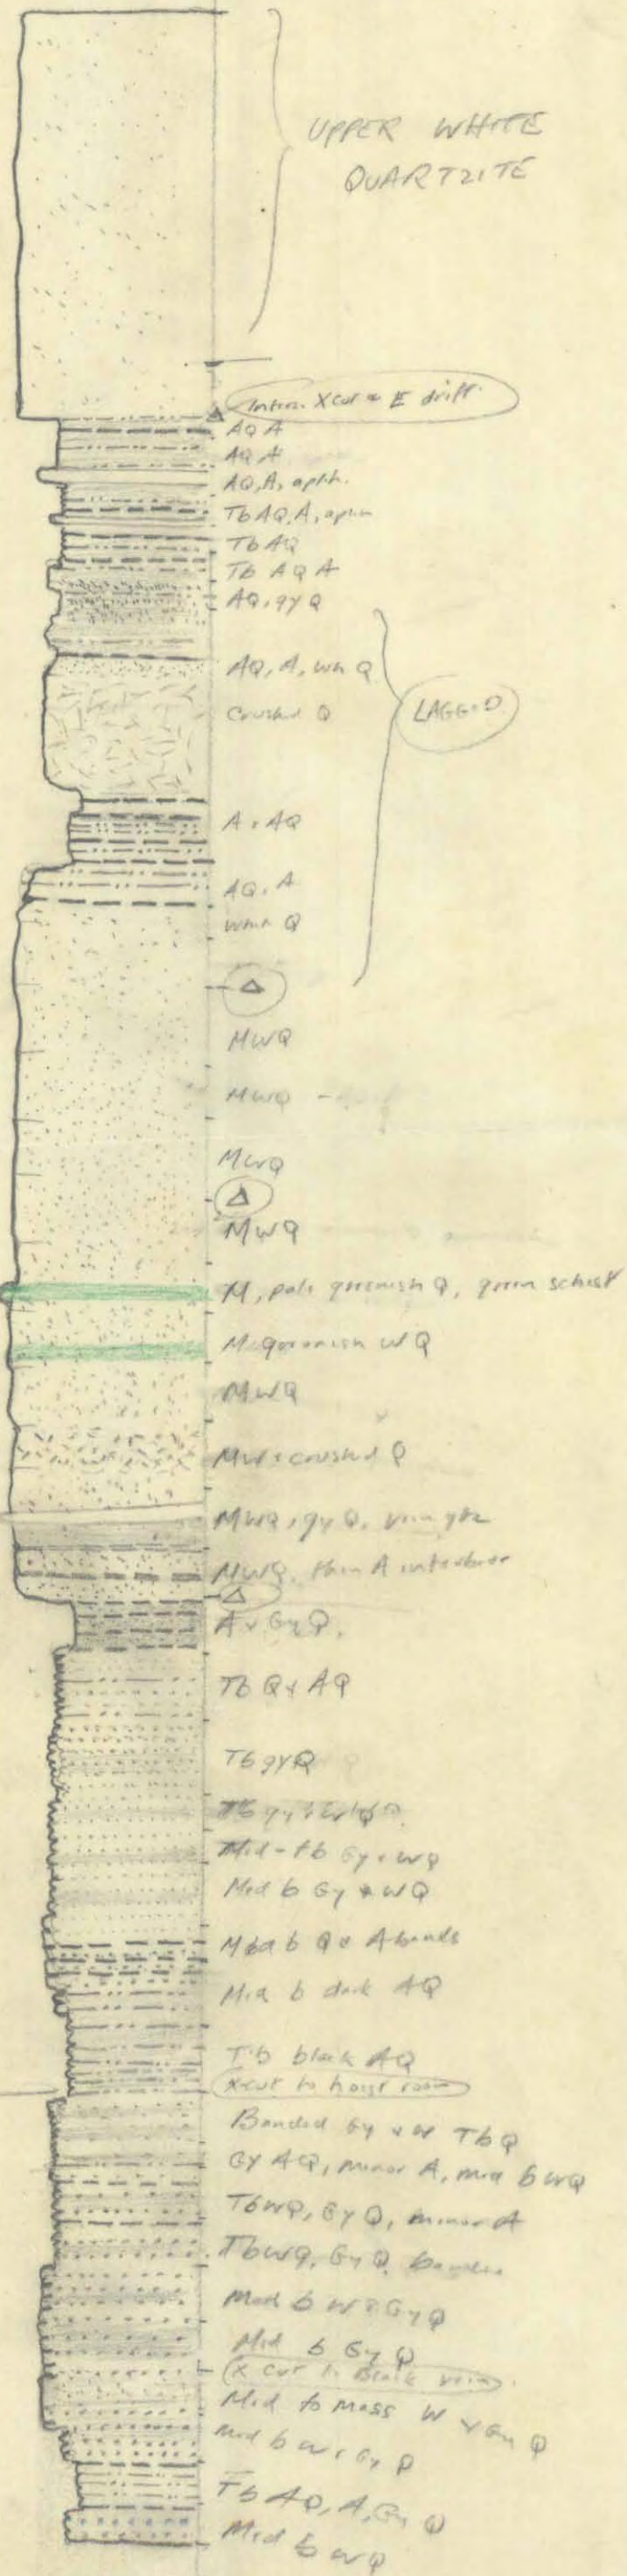 UPPER WHITE
QUARTZITE
Inters. Xcut & E drift
AQ A
AQ, A
AQ, A, aplih.
Tb AQ, A, aplih
Tb AQ
Tb AQ A
AQ, gy Q
AQ, A, wh Q
Crushed Q
LAGGED
A + AQ
AQ, A
White Q
△
MWQ
MWQ
MWQ
△
MWQ
M, pale greenish Q, green schist
M. greenish WQ
MWQ
MW + crushed Q
MWQ, gy Q, vein qtz
MWQ, thin A interbeds
△
A + Gy Q.
Tb Q + AQ
Tb gy Q
Tb gy + W Q
Med-tb Gy + WQ
Med b Gy + WQ
Med b Q + A bands
Med b dark AQ
Tb black AQ
X-cut to hoist room
Banded Gy + W Tb Q
Gy AQ, minor A, med b WQ
Tb WQ, Gy Q, minor A
Tb WQ, Gy Q, bands
Med b W + Gy Q
Med b Gy Q
X cut to Black vein
Med to Mass W + Gy Q
Med b W + Gy Q
Tb AQ, A, Gy Q
Med b WQ